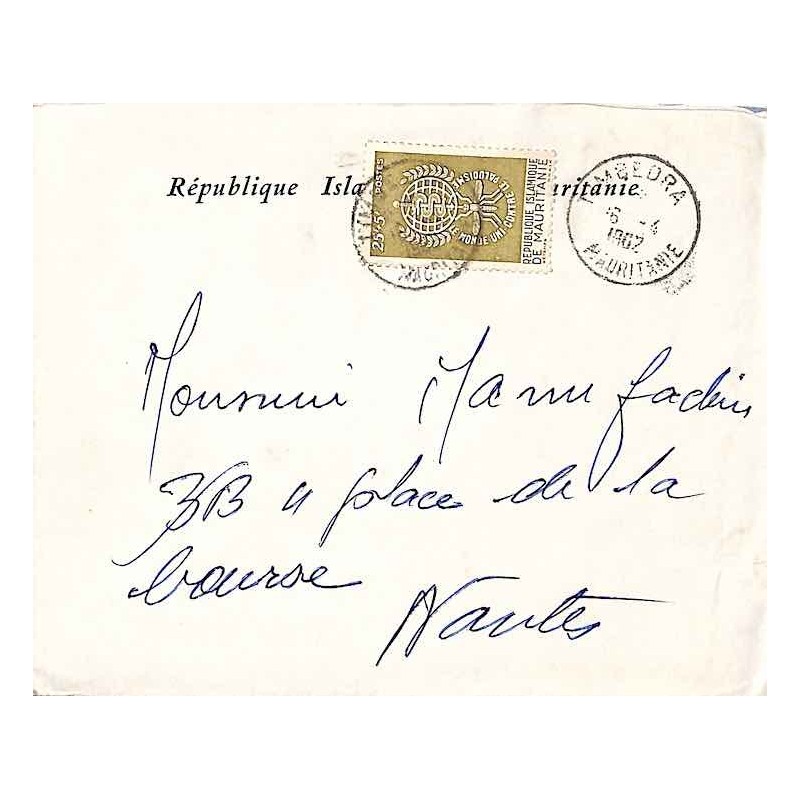 République Isla uritanie
25F+5F POSTES
LE MONDE UNI CONTRE LE PALUDISME
REPUBLIQUE ISLAMIQUE
DE MAURITANIE
TIMBEDRA
6 -4
1962
MAURITANIE
TIM
MAURI
Monsieur
3B 4 place de la
bourse
Nantes